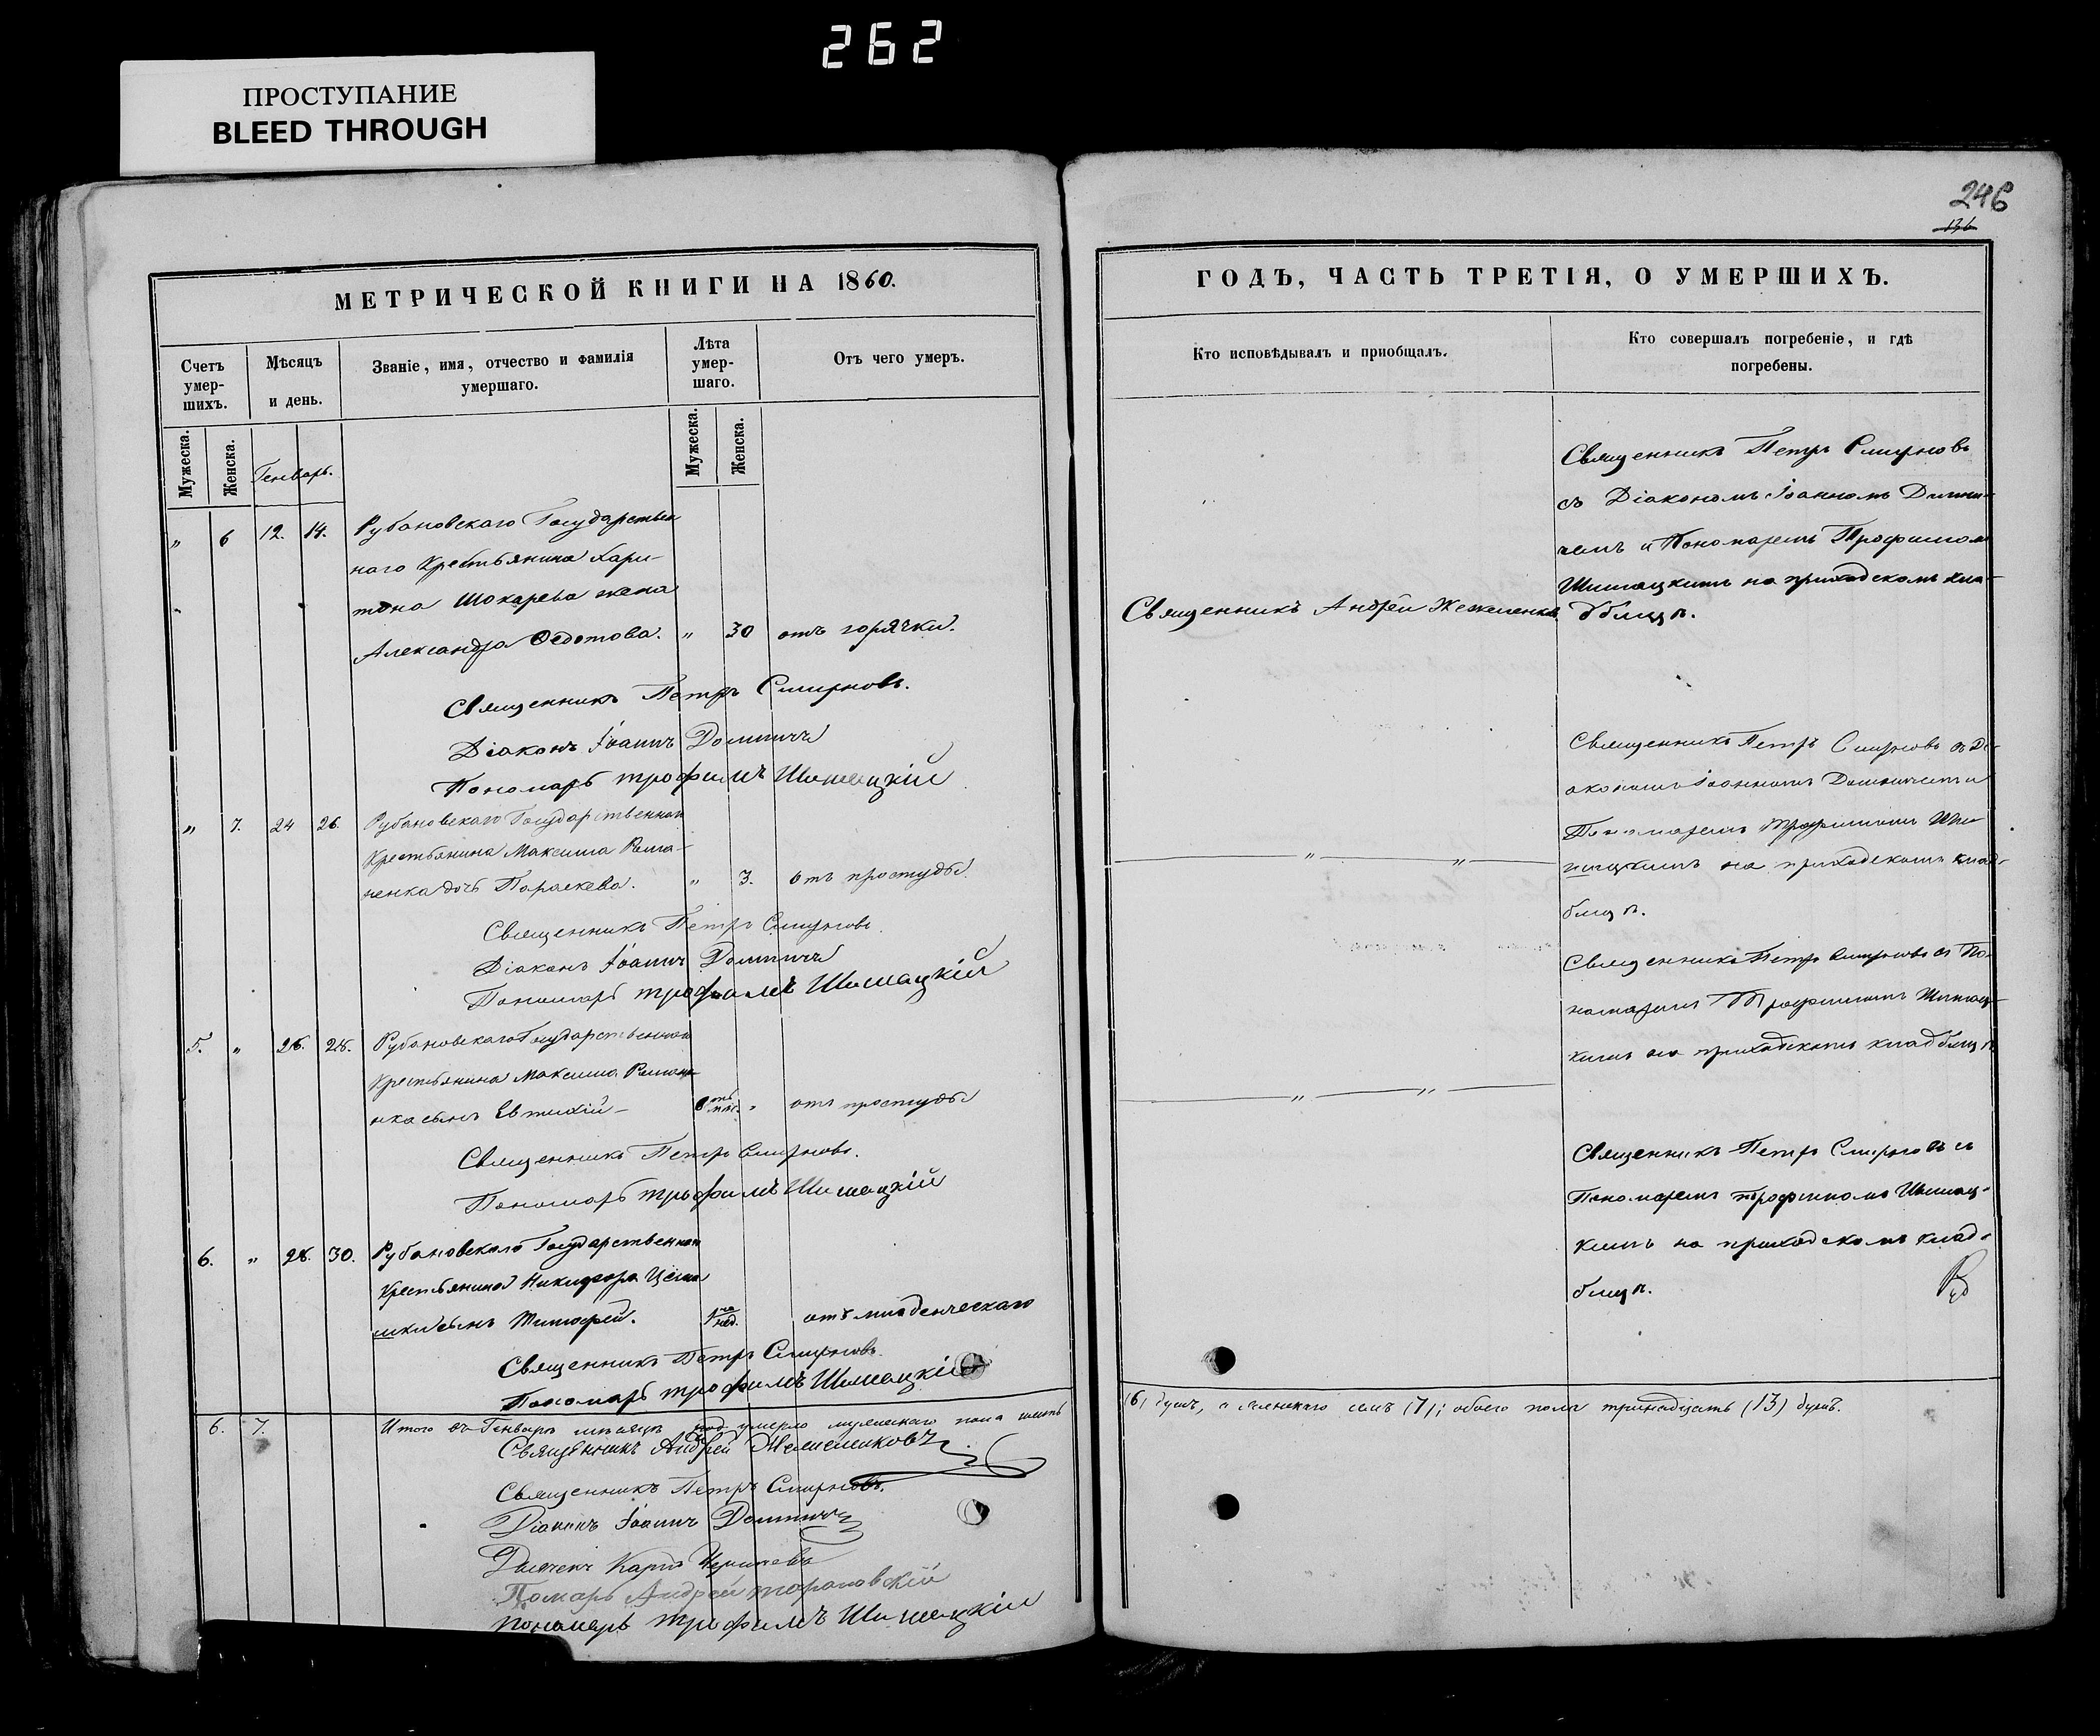 262
ПРОСТУПАНИЕ
BLEED THROUGH
246
136
МЕТРИЧЕСКОЙ КНИГИ НА 1860.
Счетъ умер-шихъ.
Мѣсяцъ и день.
Званіе, имя, отчество и фамилія умершаго.
Лѣта умер-шаго.
Отъ чего умеръ.
Мужеска.
Женска.
Генварь.
Мужеска.
Женска.
" 6 12. 14. Рубановскаго Государствен
наго Крестьянина Хари-
тона Шокарева жена
Александра Федотова. " 30 отъ горячки.
Священникъ Петръ Смирновъ.
Діаконъ Іоаннъ
Пономарь Трофимъ Шишацкій
" 7. 24 26. Рубановскаго Государственнаго
Крестьянина Максима Рома-
ненка дочь Параскева. " 3. отъ простуды.
Священникъ Петръ Смирновъ.
Діаконъ Іоаннъ
Пономарь Трофимъ Шишацкій
5. " 26. 28. Рубановскаго Государственнаго
Крестьянина Максима Романе-
нка сынъ Евтихій - " отъ простуды
Священникъ Петръ Смирновъ.
Пономарь Трофимъ Шишацкій
6. " 28. 30. Рубановскаго Государственнаго
Крестьянина Никифора
сынъ Тимофей. нед. отъ младенческаго
Священникъ Петръ Смирновъ
Пономарь Трофимъ Шишацкій
6. 7. Итого въ Генварѣ мѣсяцѣ умерло мужескаго пола шесть
Священникъ Андрей
Священникъ Петръ Смирновъ.
Діаконъ Іоаннъ
Дьячекъ Карпъ
Помарь Андрей
пономарь Трофимъ Шишацкій
ГОДЪ, ЧАСТЬ ТРЕТІЯ, О УМЕРШИХЪ.
Кто исповѣдывалъ и приобщалъ.
Кто совершалъ погребеніе, и гдѣ
погребены.
Священникъ Андрей
Священникъ Петръ Смирновъ
съ Діакономъ Іоанномъ
и Пономаремъ Трофимомъ
Шишацкимъ на приходскомъ кла-
дбищѣ.
" "
Священникъ Петръ Смирновъ съ Ді-
акономъ Іоанномъ
Пономаремъ Трофимомъ Ши-
шацкимъ на приходскомъ клад-
бищѣ.
" "
Священникъ Петръ Смирновъ съ По-
номаремъ Трофимомъ Шишац-
кимъ на приходскомъ кладбищѣ
Священникъ Петръ Смирновъ съ
Пономаремъ Трофимомъ Шишац-
кимъ на приходскомъ клад-
бищѣ.
(6) душъ, а женскаго семь (7); обоего пола тринадцать (13) душъ.